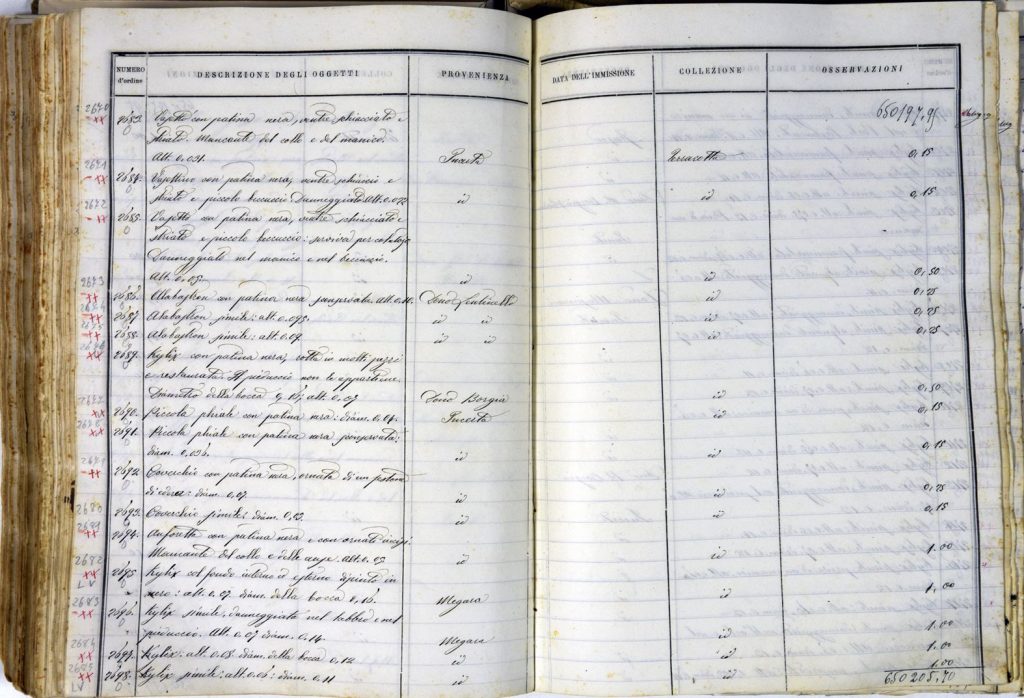 NUMERO d'ordine DESCRIZIONE DEGLI OGGETTI PROVENIENZA DATA DELL'IMMISSIONE COLLEZIONE OSSERVAZIONI
650197.95
2670 2683. Vasetto con patina nera, ventre schiacciato e
striato. Mancante del collo e del manico.
Alt. 0.031. Incerta Terracotta 0,15
2671 2684. Vasettino con patina nera, ventre schiaccio e
striato e piccolo beccuccio Danneggiato Alt. 0.022 id id 0,15
2672 2685. Vasetto con patina nera, ventre schiacciato e
striato e piccolo beccuccio: serviva per colatojo
Danneggiato nel manico e nel beccuccio.
Alt. 0.05. id id 0,50
2673 2686. Alabastron con patina nera conservato. Alt. 0.11. Dono id 0,25
2687 Alabastron simile: alt. 0.095. id id id 0,25
2688. Alabastron simile: alt. 0.07 id id id 0,25
2689. Kylix con patina nera, rotta in molti pezzi
e restaurata. Il pieduccio non le appartiene.
Diametro della bocca 0,15; alt. 0.07 Dono Borgia id 0,50
2690. Piccola phiale con patina nera: diam. 0.07. Incerta id 0,15
2691. Piccola phiale con patina nera conservata:
diam. 0.036. id id 0,15
2692. Coverchio con patina nera, ornata di un festone
di edera: diam. 0.07 id id 0,25
2680 2693. Coverchio simile: diam. 0.03. id id 0,15
2694. Anforetta con patina nera e con ornati incisi
Mancante del collo e delle anse. Alt. 0.07 id id 1.00
2682 2695 Kylix col fondo interno ed esterno dipinto in
LV nero: alt. 0.07. diam. della bocca 0,16. Megara id 1,00
2683 2696. Kylix simile, danneggiata nel labbro e nel
pieduccio. Alt. 0.07 diam. 0.14. Megara id 1.00
2684 2697. Kylix: alt. 0.08. diam. della bocca 0,12 id id 1.00
2685 2698. Kylix simile: alt. 0.05: diam. 0.11 id id 1.00
LV 650205,70